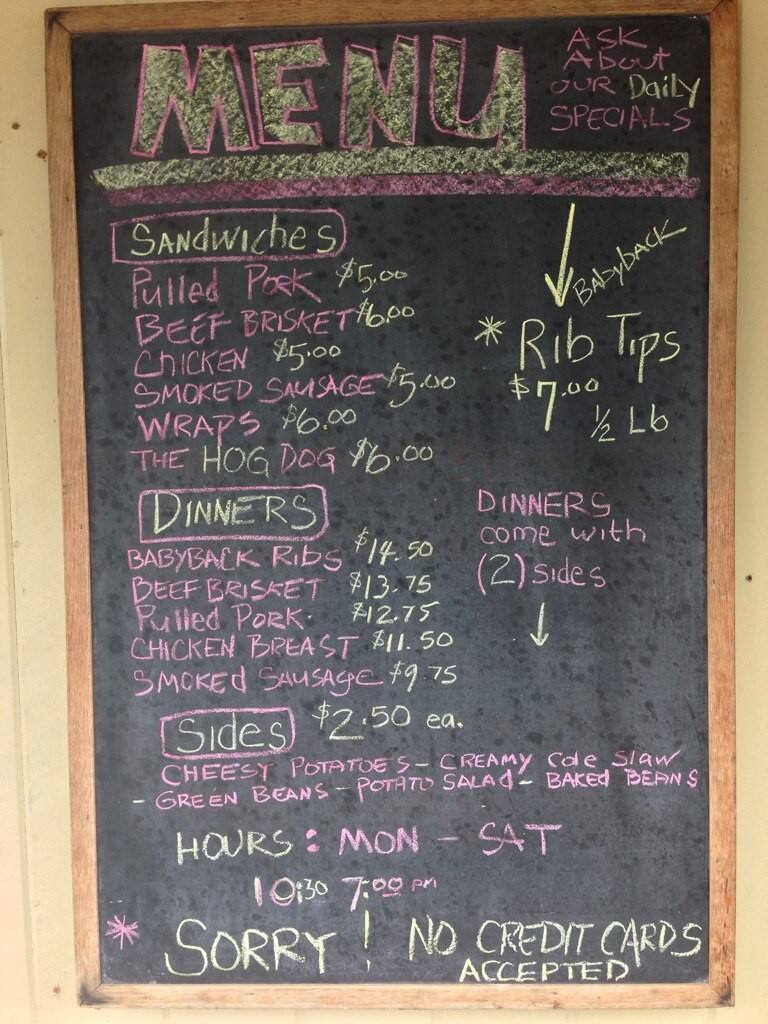 MENU
ASK
About
OUR Daily
SPECIALS
SANdwiches
Pulled Pork $5.00
BEEF BRISKET $6.00
CHICKEN $5.00
SMOKED SAUSAGE $5.00
WRAPS $6.00
THE HOG DOG $6.00
Babyback
* Rib Tips
$7.00
1/2 Lb
DINNERS
BABYBACK Ribs $14.50
BEEF BRISKET $13.75
Pulled Pork $12.75
CHICKEN BREAST $11.50
SMOKEd SAUSAGE $9.75
DINNERS
come with
(2) sides
Sides $2.50 ea.
CHEESY POTATOES - CREAMY Cole Slaw
- GREEN BEANS - POTATO SALAD - BAKED BEANS
HOURS : MON - SAT
10:30 7:00 PM
* SORRY ! NO CREDIT CARDS
ACCEPTED